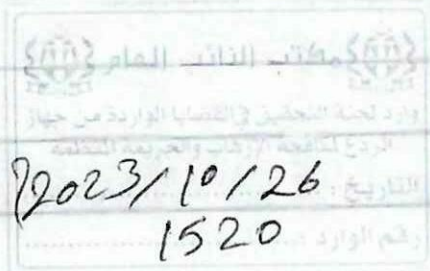 مكتب النائب العام
وارد لجنة التحقيق في القضايا الواردة من جهاز
الردع لمكافحة الإرهاب والجريمة المنظمة
التاريخ: 2023/10/26
رقم الوارد: 1520